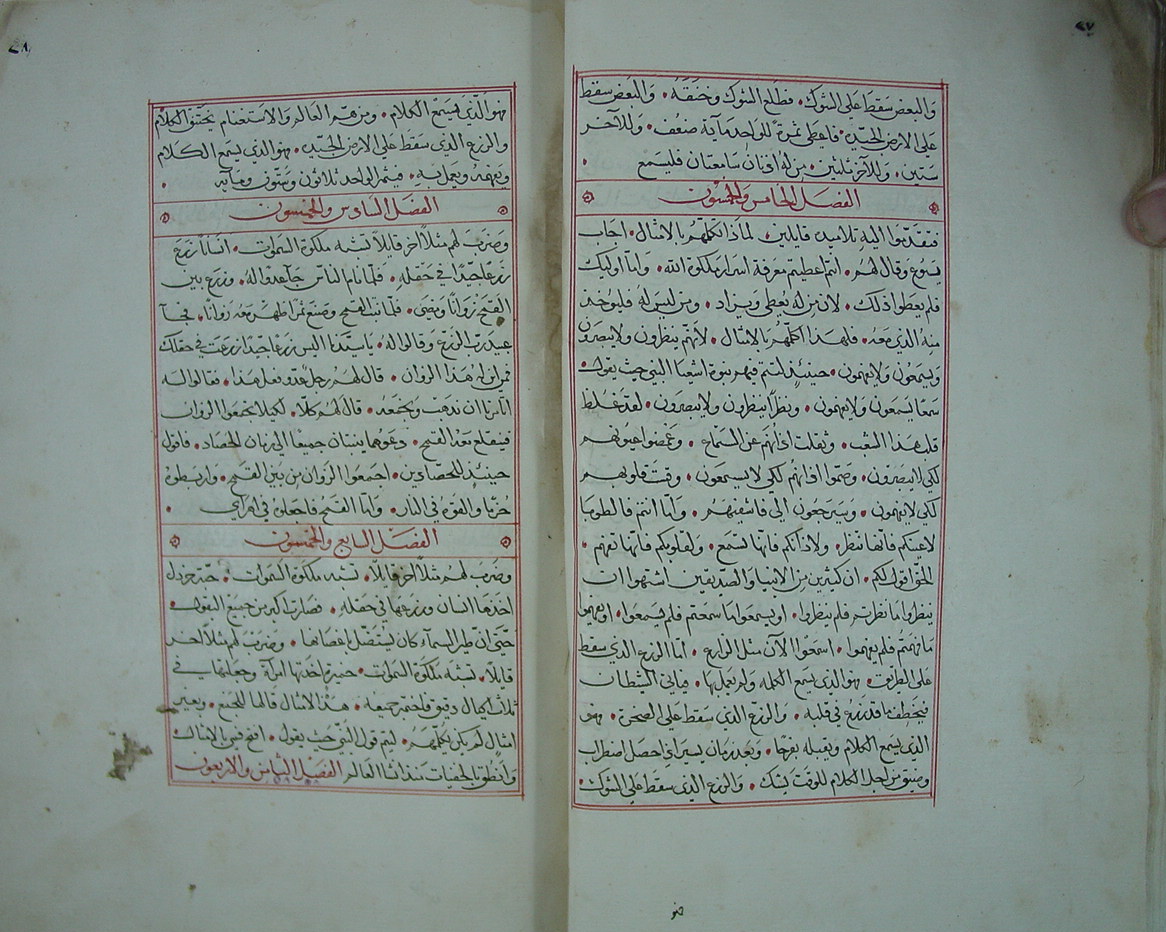 ٤٧
والبعض سقط على الشوك • فطلع الشوك وخنقه • والبعض سقط
على الارض الجيدة • فاعطى ثمرة للواحد ماية ضعف • وللآخر
ستين • وللآخر ثلثين • من له اذنان سامعتان فليسمع •
الفصل الخامس والخمسون
فتقدموا اليه تلاميذه قايلين • لماذا تكلمهم بالامثال • اجاب
يسوع وقال لهم • انتم اعطيتم معرفة اسرار ملكوة الله • واما اوليك
فلم يعطوا ذلك • لان من له يعطى ويزاد • ومن ليس له فليوخد
منه الذي معه • فلهذا اكلمهم بالامثال • لانهم ينظرون ولا يبصرون
ويسمعون ولا يفهمون • حينيذ لتتم فيهم نبوة اشعيا النبي حيث يقول •
سمعا يسمعون ولا يفهمون • ونظرا ينظرون ولا يبصرون • لقد غلظ
قلب هذا الشعب • وثقلت اذانهم عن السماع • وغمضوا عيونهم
لكي لا يبصرون • وصموا اذانهم لكي لا يسمعون • وقست قلوبهم
لكي لا يفهمون • وسيرجعون الي فاشفيهم • واما انتم فالطوبا
لاعينكم فانها تنظر • ولاذانكم فانها تسمع • ولقلوبكم فانها تفهم •
الحق اقول لكم • ان كيثرين من الانبيا والصديقين اشتهوا ان
ينظروا ما نظرتم فلم ينظروا • او يسمعوا ما سمعتم فلم يسمعوا • او يفهموا
ما فهمتم فلم يفهموا • اسمعوا الآن مثل الزارع • اما الزرع الذي سقط
على الطريق • فهو الذي يسمع الكلمه ولم يعمل بها • فياتي الشيطان
فيخطف ما قد زرع في قلبه • والزرع الذي سقط على الصخرة • فهو
الذي يسمع الكلام ويقبله بفرحا • وبعد زمان يسير اذا حصل اضطراب
وضيق من اجل الكلام للوقت يشك • والزرع الذي سقط على الشوك
فهو
٤٨
فهو الذي يسمع الكلام • ومن هم العالم والاستغنام يختنق الكلام
والزرع الذي سقط على الارض الجيدة • فهو الذي يسمع الكلام
ويفهمه ويعمل به • فيثمر الواحد ثلاثون وستون وماية •
الفصل السادس والخمسون
وضرب لهم مثلاً اخر قايلاً تشبه ملكوة السموات • انسانا زرع
زرعا جيدا في حقله • فلما نام الناس جا عدوا له • وزرع بين
القمح زوانا ومضى • فلما نبت القمح وصنع ثمرا ظهر معه زوانا • فجآ
عبيد رب الزرع وقالوا له • يا سيدنا اليس زرعا جيدا زرعت في حقلك
فمن اين له هذا الزوان • قال لهم رجل عدو فعل هذا • فقالوا له
اتامرنا ان نذهب ونجمعه • قال لهم كلا • لكيلا تجمعوا الزوان
فينقلع معه القمح • دعوهما ينبتان جميعا الى زمان الحصاد • فاقول
حينيذ للحصادين • اجمعوا الزوان من بين القمح • واربطوه
حزما والقوه في النار • واما القمح فاجعلوه في اهراي •
الفصل السابع والخمسون
وضرب لهم مثلاً اخر قايلاً • تشبه ملكوة السموات • حبة خردل
اخذها انسان وزرعها في حقله • فصارت اكبر من جميع البقول
حتى ان طير السمآء كان يستضل باغصانها • وضرب لهم مثلاً اخر
قايلاً • تشبه ملكوة السموات • خميرة اخذتها امرآة وجعلتها في
ثلاث اكيال دقيق فاختمر جميعه • هذا الامثال قالها للجمع • وبغير
امثال لم يكن يكلمهم • ليتم قول النبي حيث يقول • افتح فمي بالامثال
وانطق بالخفيات منذ انشا العالم الفصل الثامن والاربعون